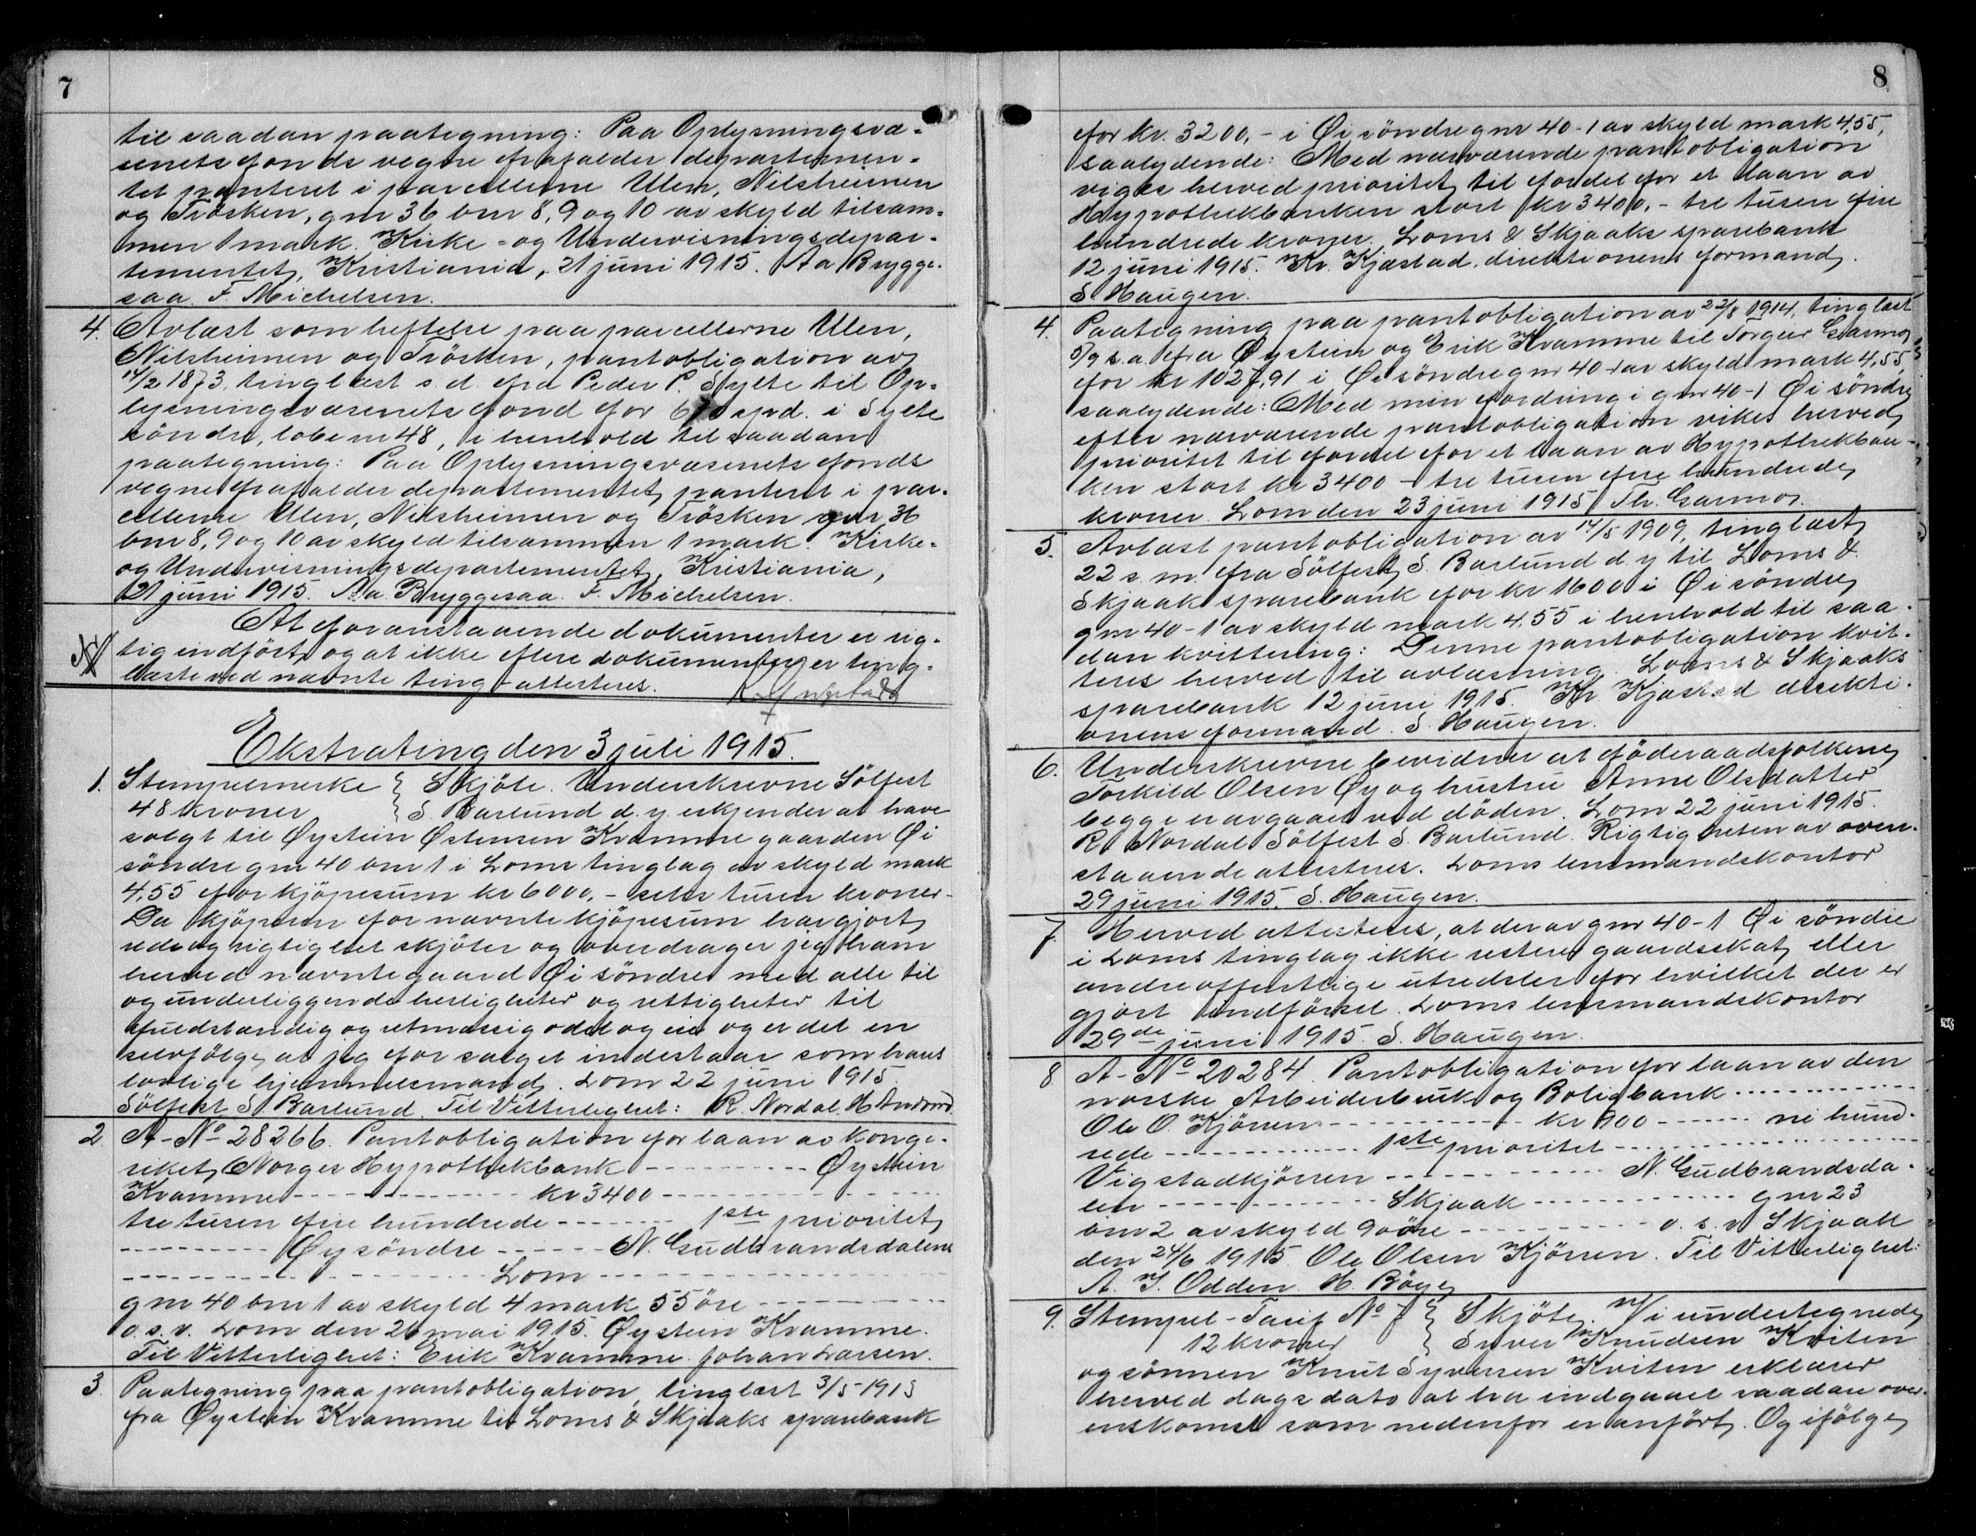 7
til saadan paategning: Paa Oplysningsvæ-
senets fonds vegne frafalder departemen-
tet panteret i parcellerne Ulen, Nilsheimen
og Trösken, gnr 36 bnr 8, 9 og 10 av skyld tilsam-
men 1 mark. Kirke- og Undervisningsdepar-
tementet, Kristiania, 21 juni 1915. Aa Brygge-
saa. F. Michelsen.
4. Avlæst som heftelse paa parcellerne Ulen,
Nilsheimen og Trösken, pantobligation av
14/2 1873, tinglæst s. d. fra Peder P. Sylte til Op-
lysningsvæsenets fond for spd. i Sylte
söndre, löbenr 48, i henhold til saadan
paategning: Paa Oplysningsvæsenets fonds
vegne frafalder departementet panteret i par-
cellerne Ulen, Nilsheimen og Trösken gnr 36
bnr 8, 9 og 10 av skyld tilsammen 1 mark. Kirke-
og Undervisningsdepartementet, Kristiania,
21 juni 1915. Aa Bryggesaa. F. Michelsen.
At foranstaaende dokumenter er rig-
tig indfört, og at ikke flere dokumenter er ting-
læste ved nævnte ting - attesteres.
Ekstrating den 3 juli 1915.
1. Stempelmerke } Skjöte. Underskrevne Sölfest
48 kroner } S. Barlund d. y. erkjender at have
solgt til Øystein Østensen Kvamme gaarden Øi
söndre gnr 40 bnr 1 i Lome tinglag av skyld mark
4,55 for kjöpesum kr 6000,- seks tusen kroner.
Da kjöperen for nævnte kjöpesum har gjort
rede og rigtighet skjöter og overdrager jeg ham
herved nævnte gaard Øi söndre med alle til
og underliggende herligheter og rettigheter til
fuldstændig og retmæssig odel og eie og er det en
selvfölge at jeg for salget indestaar som hans
lovlige hjemmelsmand. Lom 22 juni 1915
Sölfest S. Barlund. Til Vitterlighet: R. Nordal H
2 A-No 28266. Pantobligation for laan av Konge-
riket Norges Hypothekbank - - - Øystein
Kvamme - - - kr 3400 - - -
tre tusen fire hundrede - - - 1ste prioritet
- - - Øy söndre - - - N. Gudbrandsdalens
- - - Lom - - -
gnr 40 bnr 1 av skyld 4 mark 55 öre - - -
o. s. v. Lom den 26 mai 1915. Øystein Kvamme.
Til Vitterlighet: Erik Kvamme. Johan Larsen.
3. Paategning paa pantobligation, tinglæst 3/5-1913
fra Øystein Kvamme til Loms & Skjaaks sparebank
8
for kr. 3200,- i Øi söndre gnr 40-1 av skyld mark 4,55,
saalydende: Med nærværende pantobligation
viges herved prioritet til fordel for et laan av
Hypothekbanken stort kr 3400,- tre tusen fire
hundrede kroner. Loms & Skjaaks sparebank
12 juni 1915. Kr. Kjæstad, direktionens formand.
S Haugen.
4. Paategning paa pantobligation av 22/8 1914, tinglæst
5/9 s. a. fra Øystein og Erik Kvamme til Torgeir Garmo
for kr 1027,91 i Øi söndre gnr 40-1 av skyld mark 4,55,
saalydende: Med min fordring i gnr 40-1 Øi söndre
efter nærværende pantobligation vikes herved
prioritet til fordel for et laan av Hypothekban-
ken stort kr 3400 - tre tusen fire hundrede
kroner. Lom den 23 juni 1915 Th. Garmo.
5. Avlæst pantobligation av 14/5 1909, tinglæst
22 s. m. fra Sölfest S. Barlund d. y til Loms &
Skjaak sparebank for kr 1600 i Øi söndre
gnr 40-1 av skyld mark 4.55 i henhold til saa-
dan kvittering: Denne pantobligation kvit-
teres herved til avlæsning. Loms & Skjaaks
sparebank 12 juni 1915. Kr Kjæstad direkti-
onens formand. S. Haugen.
6. Underskrevne bevidner at föderaadsfolkene
Torkild Olsen Øy og hustru Anne Olsdatter
begge er avgaaet ved döden. Lom 22 juni 1915.
R. Nordal Sölfest S. Barlund. Rigtigheten av oven-
staaende attesteres. Loms lensmandskontor
29 juni 1915. S. Haugen.
7. Herved attesteres, at der av gnr 40-1 Øi söndre
i Loms tinglag ikke resterer gaardsskat eller
andre offentlige utredsler for hvilket der er
gjort indförsel. Loms lensmandskontor
29de juni 1915. S. Haugen.
8 A-No 20284. Pantobligation for laan av den
norske Arbeiderbruk- og Boligbank - - -
Ole O. Kjörren - - - kr 900 - - - ni hund-
rede - - - 1ste prioritet - - -
Vigstadkjörren - - - N. Gudbrandsda-
len - - - Skjaak - - - gnr 23
bnr 2 av skyld 9 öre - - - o. s. v. Skjaak
den 24/6 1915. Ole Olsen Kjörren. Til Vitterlighet:
A. I. Odden H Böye
9. Stempel-Tarif No } Skjöte. Vi undertegnede
12 kroner } Syver Knudsen Kviten
og sönnen Knut Syversen Kviten erklærer
herved dags dato at ha indgaaet saadan over-
enskomst som nedenfor er anfört. Og ifölge